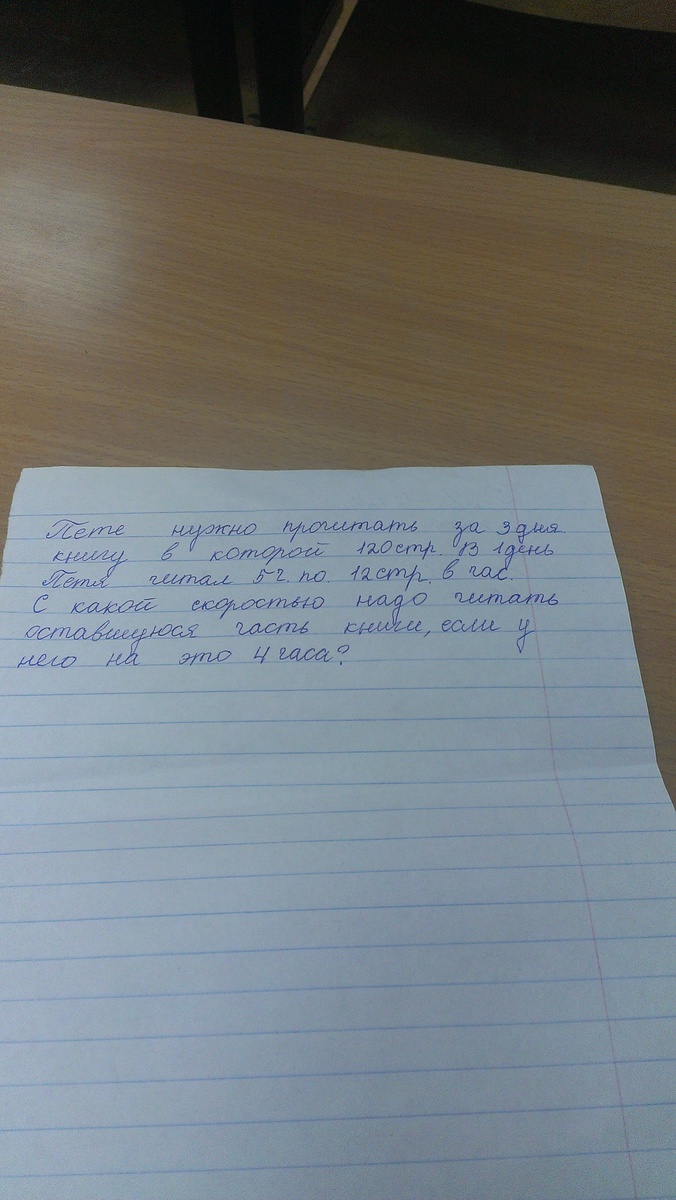 Пете нужно прочитать за 3 дня
книгу в которой 120 стр. В 1 день
Петя читал 5 ч. по. 12 стр. в час.
С какой скоростью надо читать
оставшуюся часть книги, если у
него на это 4 часа?